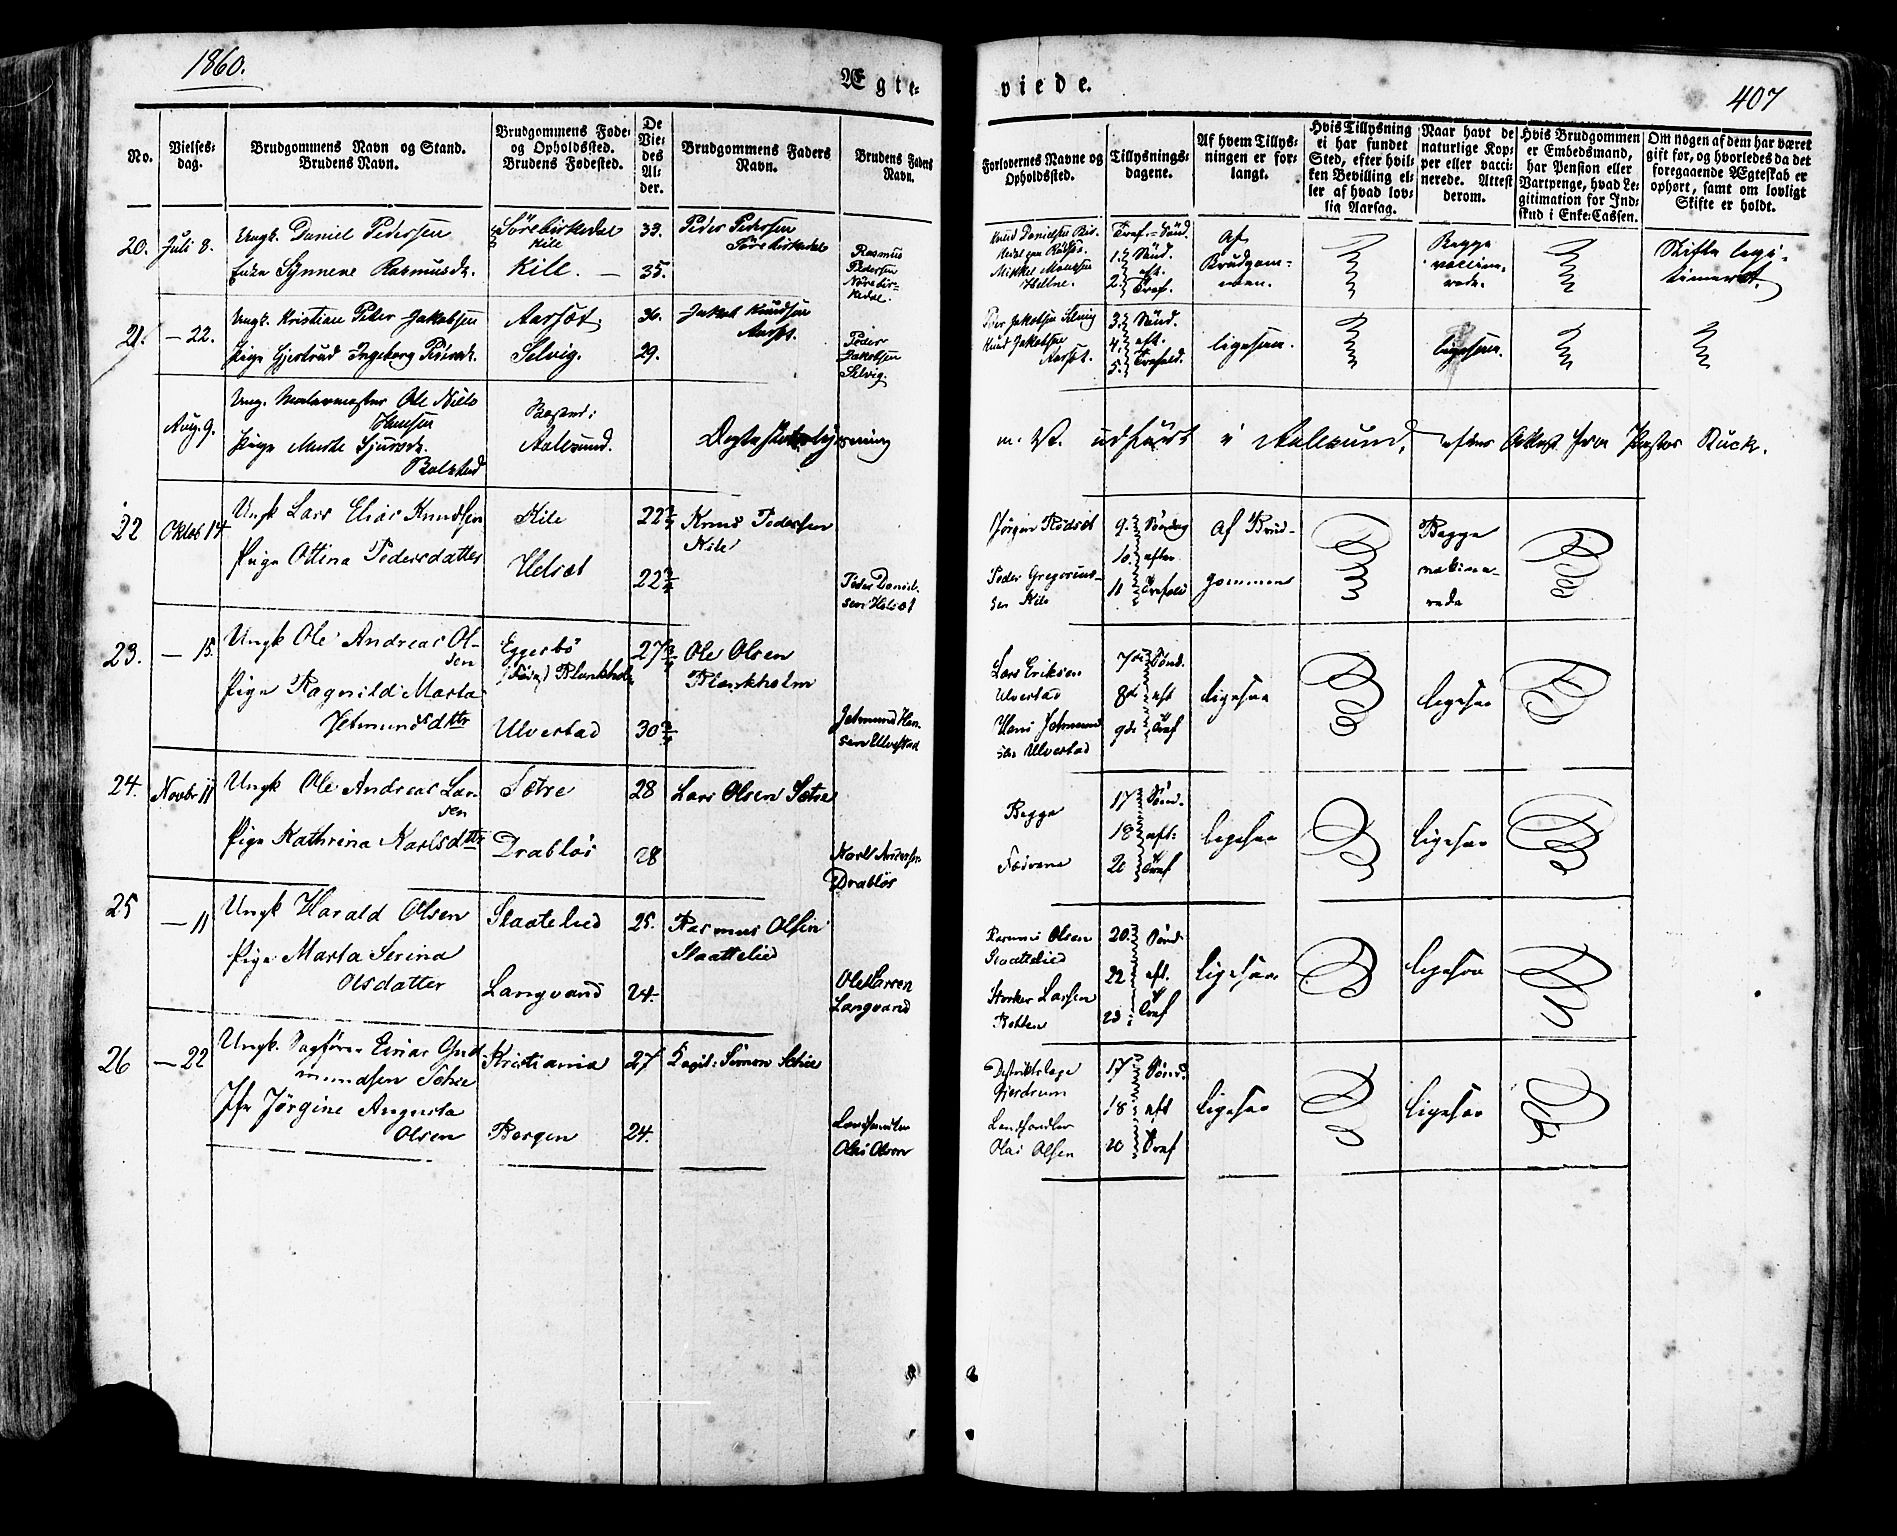 1860.
Ægte-
viede.
407
No.
Vielses-
dag.
Brudgommens Navn og Stand.
Brudens Navn.
Brudgommens Føde-
og Opholdssted.
Brudens Fødested.
De
Vie-
des
Al-
der.
Brudgommens Faders
Navn.
Brudens Faders
Navn.
Forlovernes Navne og
Opholdssted.
Tillysnings-
dagene.
Af hvem Tillys-
ningen er for-
langt.
Hvis Tillysning
ei har fundet
Sted, efter hvil-
ken Bevilling el-
ler af hvad lov-
lig Aarsag.
Naar havt de
naturlige Kop-
per eller vacci-
nerede. Attest
derom.
Hvis Brudgommen
er Embedsmand,
har Pension eller
Vartpenge, hvad Le-
gitimation for Ind-
skud i Enke-Cassen.
Om nogen af dem har været
gift før, og hvorledes da det
foregaaende Ægteskab er
ophørt, samt om lovligt
Skifte er holdt.
20. Juli 8.
Ungk. Daniel Pedersen
Enke Synneve Rasmusdr.
Sørebirkedal
Kile
Kile. —
33.
35.
Peder Pedersen
Sørebirkedal
Rasmus
Pedersen
Nørebir-
kedal.
Knud Danielsen
Mikkel
1. Sønd.
2. eft. Tref.
Af
Brudgom-
men.
Begge
vaccine-
rede.
Skifte legi-
timeret.
21. — 22.
Ungk. Kristian Peter Jakobsen
Pige Gjertrud Ingeborg Pedersdr.
Aarsæt
Selvig.
30.
29.
Jakob Knudsen
Aarset.
Peder
Jakobsen
Selvig.
Peder Jakobsen Selvig
Knud Jakobsen
Aarset.
3. Sønd.
4. eft.
5. Trefold.
ligesaa.
ligesaa.
Aug. 9.
Ung. Malermester Ole Nils
Hansen
Pige Marte Sjursdr.
Bolstad
Begge i
Aalesund.
m. V. udført i Aalesund, efter Attest fra Pastor Buck.
22 Oktob 14
Ungk Lars Elias Knudsen
Pige Oltina Pedersdatter
Kile
Helsæt
22
22 3/4
Knud Pedersen
Kile
Peder Daniel-
sen Helset
Jørgen Rødsæt
Peder Gregorius-
sen Kile
9. Søndag
10. efter
11 Trefold
af Brud-
gommen
Begge
vaksine-
rede
23. — 15.
Ungk Ole Andreas Ol-
sen
Pige Ragnild Marta
Jetmundsdttr
Eggesbø
Blankholm
Ulvestad
27 3/4
30 3/4
Ole Olsen
Blankholm
Jetmund Han-
sen Ulvestad
Lars Eriksen
Ulvestad
Hans Jetmund
sen Ulvestad
7de Sønd.
8de eft
9de Tref
ligesaa
ligesaa
24. Novbr 11
Ungk Ole Andreas Lar-
sen
Pige Kathrina Karlsdttr
Sætre
Drabløs
28
28
Lars Olsen Sætre
Karls Andersen
Drabløs
Begge
Fædrene
17 Sønd.
18 eft:
20 Tref
ligesaa
ligesaa
25 — 11
Ungk Harald Olsen
Pige Marta Serina
Olsdatter
Slaatelied
Langvand
25.
24.
Rasmus Olsen
Slaattelied
Ole Larsen
Langvand
Rasmus Olsen
Slaatelied
Storker Larsen
Botten
20. Sønd.
22 eft.
23 Tref
ligesaa
ligesaa
26 — 22
Ungk. Sagfører Einar Gud-
mundsen Schie
Jfr Jørgine Augusta
Olsen
Kristiania
Bergen
27
24.
Kapit: Simon Schie
Landhandler
Olai Olsen
Distriktslæge
Gjerdrum
Landhandler
Olai Olsen
17 Sønd.
18 eft
20 Tref
ligesaa
ligesaa